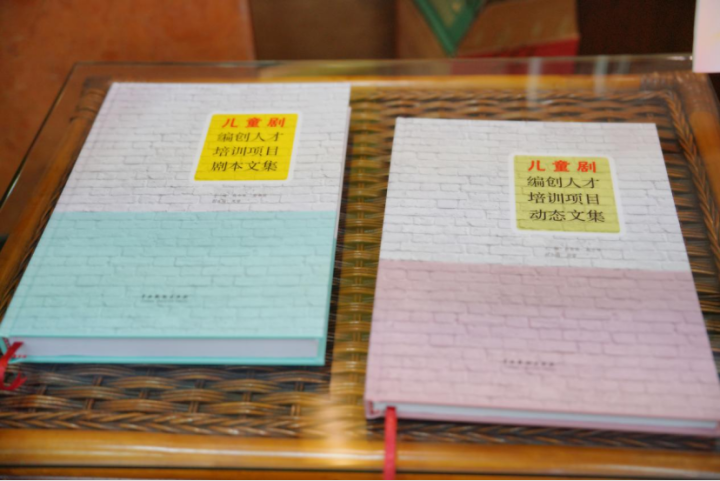 儿童剧
编创人才
培训项目
剧本文集
儿童剧
编创人才
培训项目
动态文集